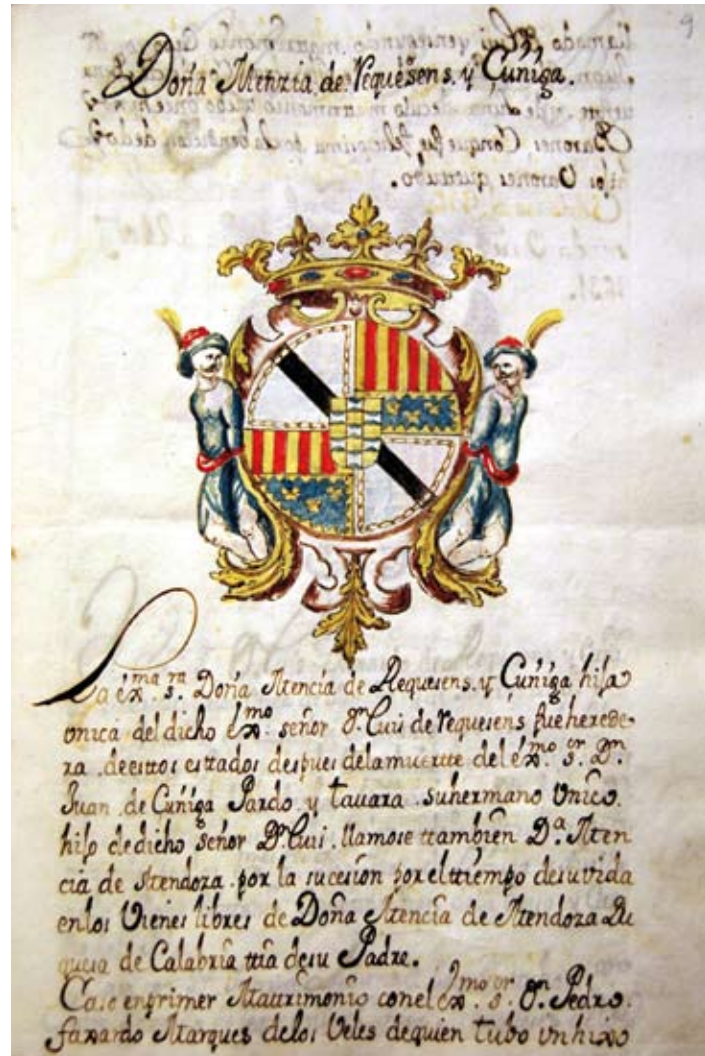 9
Doña Menzia de requesens. y Cuñiga.
La ex.ma s.ra Doña Mencia de Requesens. y Cuñiga hija
vnica del dicho ex.mo señor D.n Luis de requesens fue herede-
ra . de estos estados despues de la muertte del ex.mo s.or D.n
Juan . de Cuñiga Pardo . y tauara . su hermano Vnico.
hijo de dicho señor D.n Luis . llamose ttambien D.a Men
cia de Mendoza . por la sucesion por el ttiempo de su vida
en los Vienes libres de Doña Mencia de Mendoza Du
quesa de Calabria ttia de su Padre.
Caso en primer Matrimonio con el ex.mo s.or D.n Pedro.
faxardo Marques de los Veles de quien tubo vn hixo